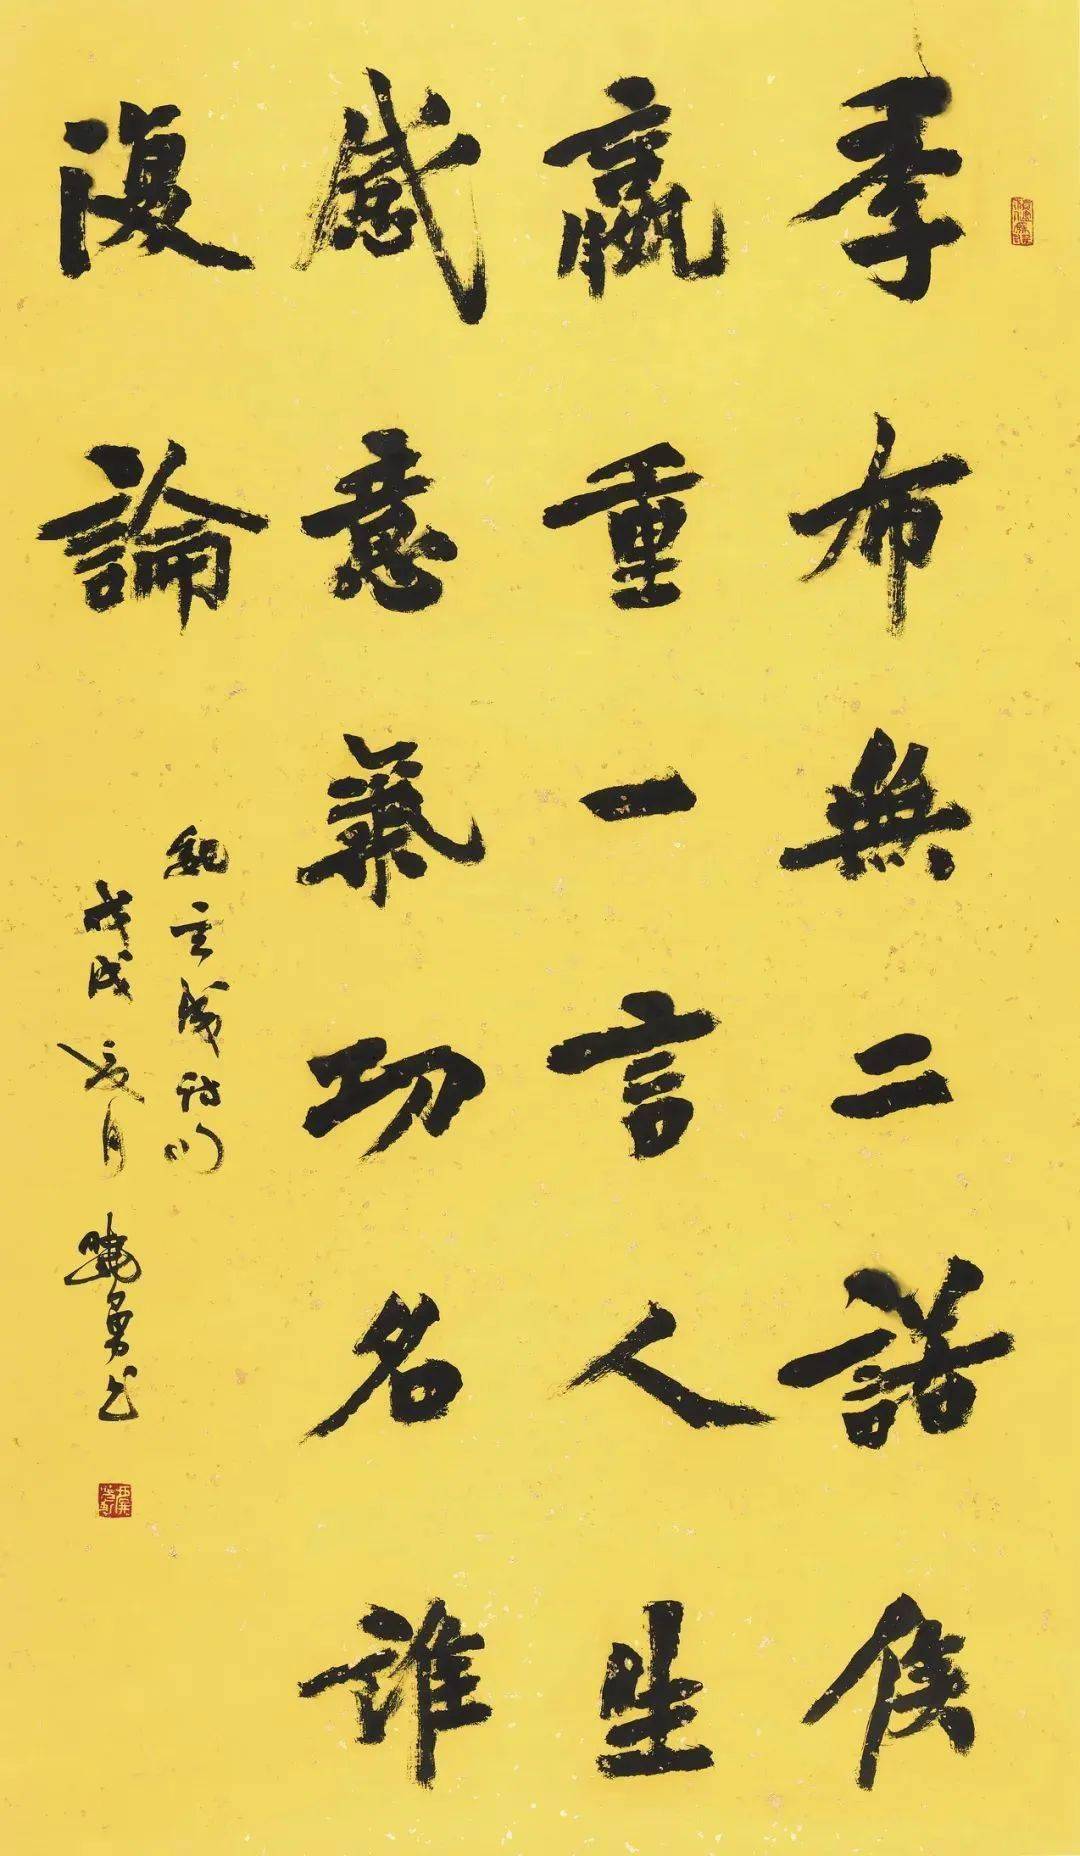 季布無二諾侯
嬴重一言人生
感意氣功名誰
復論
魏玄成詩句
戊戌夏月曉勇书